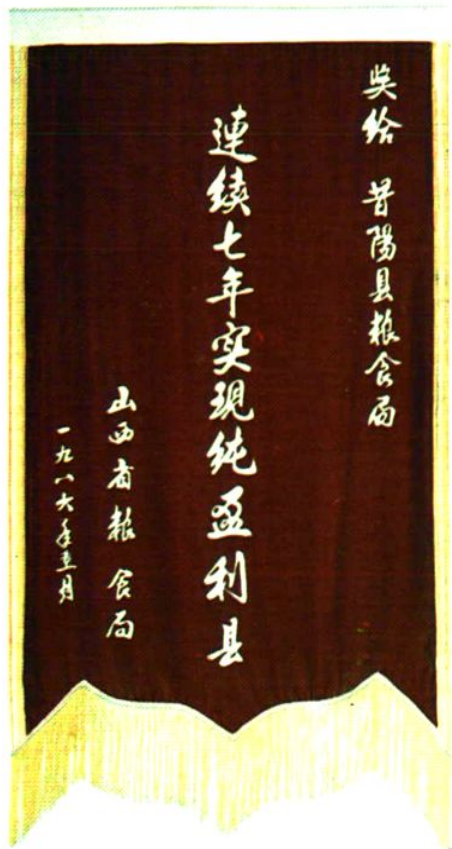 奖给 昔陽县粮食局
連續七年实現纯盈利县
山西省粮食局
一九八六年五月